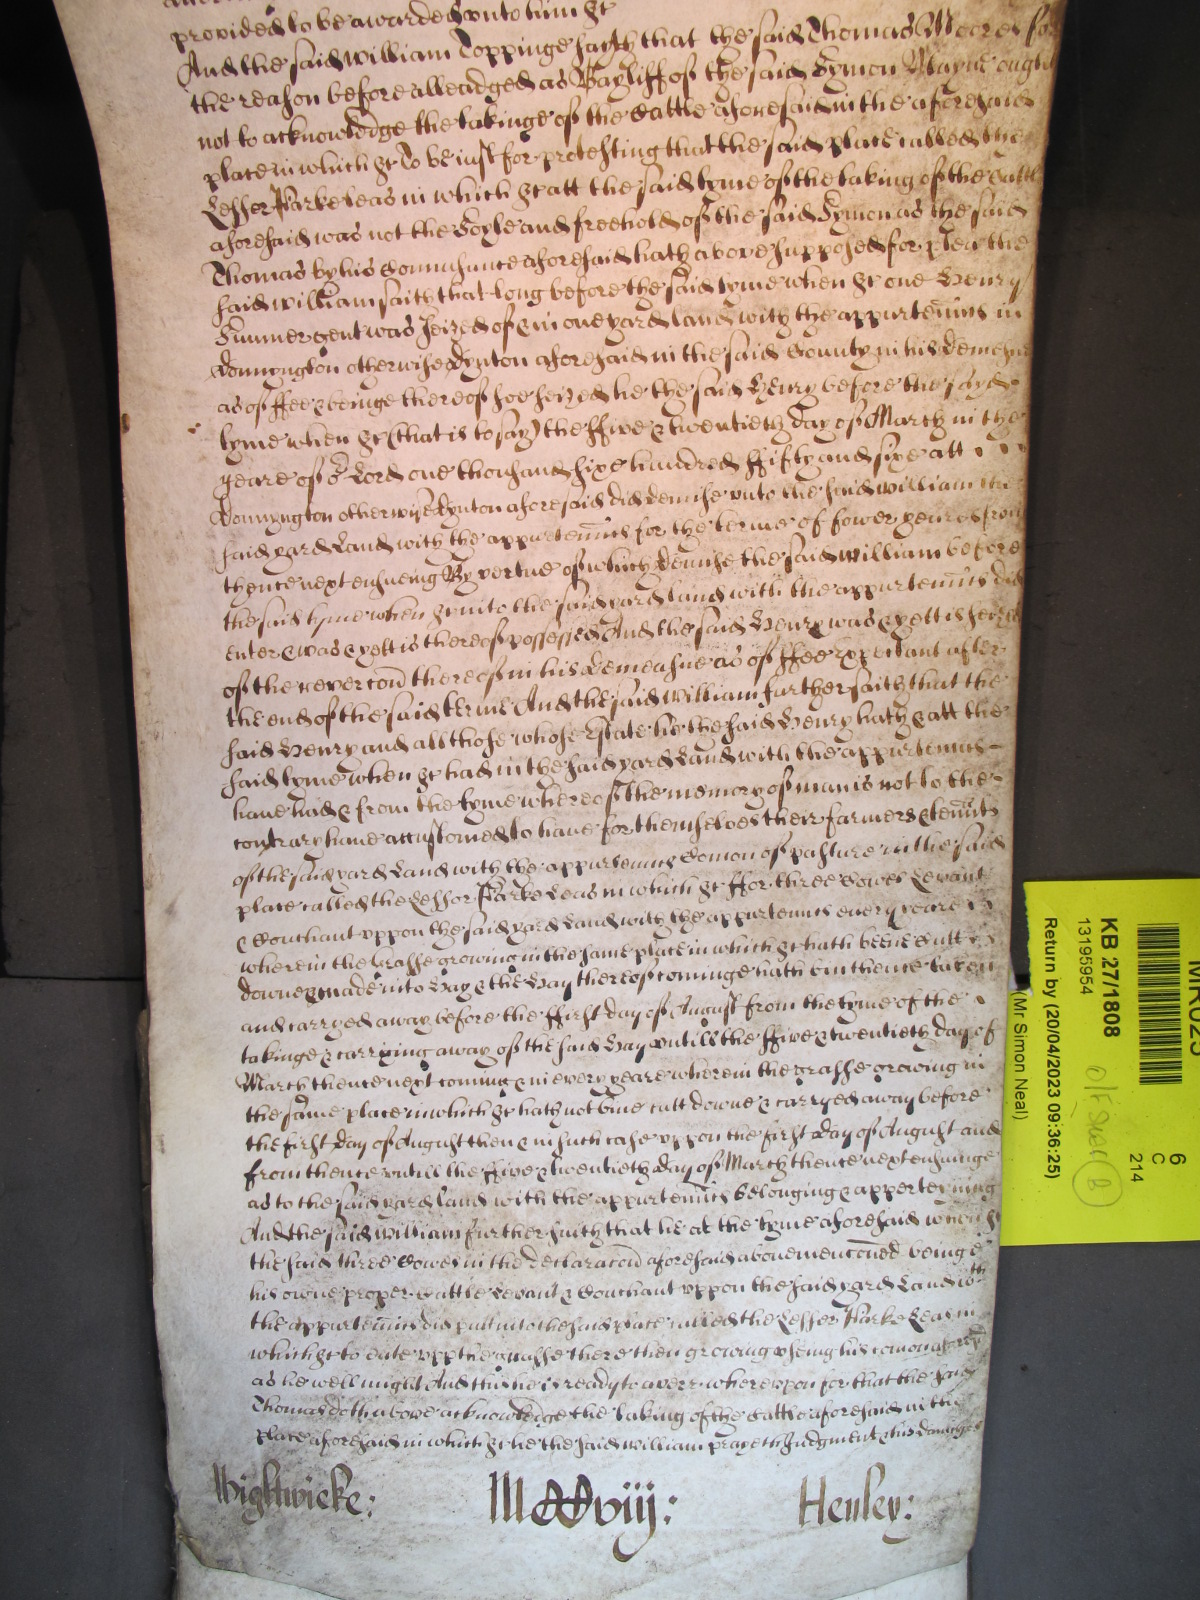 provided to be awarded unto him &c
And the said William Toppinge sayth that the said Thomas Moores for
the reason before alleadged as Bayliff of the said Symon Mayne ought
not to acknowledge the takinge of the Cattle aforesaid in the aforesaid
place in which &c To be iust for protesting that the said place called the
Lesser Parke leas in which &c att the said tyme of the taking of the Cattle
aforesaid was not the Soyle and freehold of the said Symon as the said
Thomas by his Connusance aforesaid hath above supposed for plea the
said William saith that long before the said tyme when &c one Henry
gent was seized of & in one yard land with the appurtenncs in
Donnyngton otherwise Dynton aforesaid in the said County in his demesne
as of ffee & beinge thereof soe seized he the said Henry before the sayd
tyme when &c (that is to say) the ffive & twentieth day of March in the
yeare of or Lord one thousand sixe hundred ffifty and sixe att
Donnyngton otherwise Dynton aforesaid did demise unto the said William the
said yard Land with the appurtenncs for the terme of fower yeares from
thence next ensueing By vertue of which demise the said William before
the said tyme when &c into the said yard land with the appurtenncs did
enter & was & yett is thereof possessed And the said Henry was & yett is seized
of the revercon thereof in his demeasne as of ffee expectant after
the end of the said terme And the said William further saith that the
said Henry and all those whose Estate he the said Henry hath & att the
said tyme when &c had in the said yard Land with the appurtenncs
have had & from the tyme whereof the memory of man is not to the
contrary have accustomed to have for themselves their farmers & tennts
of the said yard Land with the appurtenncs Comon of pasture in the said
place called the Lessor Parke Leas in which &c ffor three Cowes Levant
& Couchant uppon the said yard Land with the appurtenncs every yeare
wherein the Grasse growing in the same place in which &c hath beene cutt
downe & made into Hay & the Hay thereof cominge hath bin thence taken
and carryed away before the ffirst day of August from the tyme of the
takinge & carrying away of the said Hay untill the ffive & twentieth day of
March thence next coming & in every yeare wherein the grasse growing in
the same place in which &c hath not bine cutt downe & carryed away before
the first day of August then & in such case uppon the first day of August and
from thence untill the ffive & twentieth day of March thence next ensuinge
as to the said yard land with the appurtenncs belonging & apperteyning
And the said William further saith that he at the tyme aforesaid when &c
the said three Cowes in the declaracon aforesaid abovemenconed beinge
his owne proper Cattle Levant & Couchant uppon the said yard Land wth
the appurtenncs did putt into the said place called the Lesser Parke Leas in
which &c to eate upp the grasse there then growing useing his comon aforesd
as he well might And this he is ready to averr whereupon for that the said
Thomas doth above acknowledge the taking of the Cattle aforesaid in the
place aforesaid in which &c he the said William prayeth Judgment & his damages
Wightwicke: MCCviij: Henley:
6
C
214
KB 27/1808
13195954
Return by (20/04/2023 09:36:25)
(Mr Simon Neal)